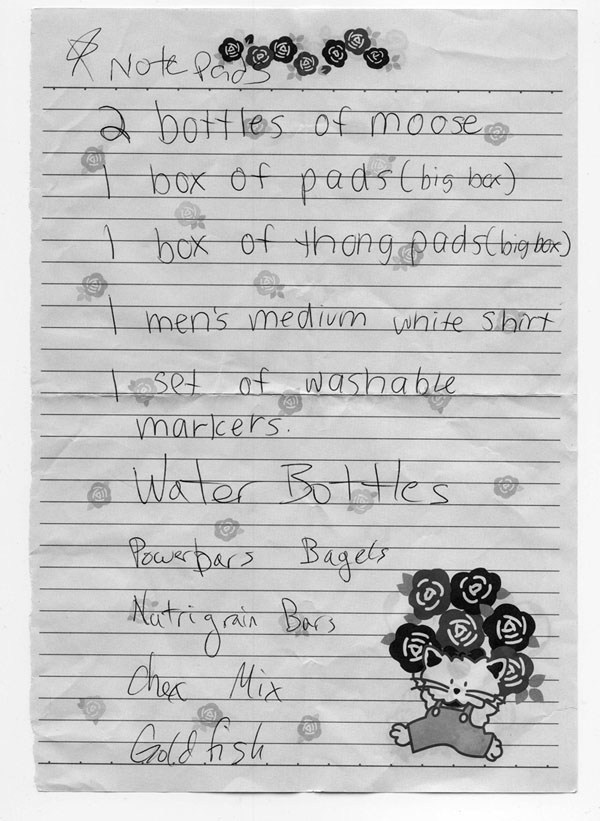 Note Pads
2 bottles of moose
1 box of pads (big box)
1 box of thong pads (big box)
1 men's medium white shirt
1 set of washable
markers.
Water Bottles
Powerbars Bagels
Nutrigrain Bars
Chex Mix
Goldfish